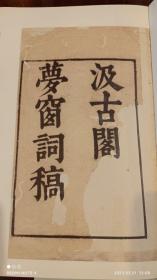 汲古閣
夢窗詞稿